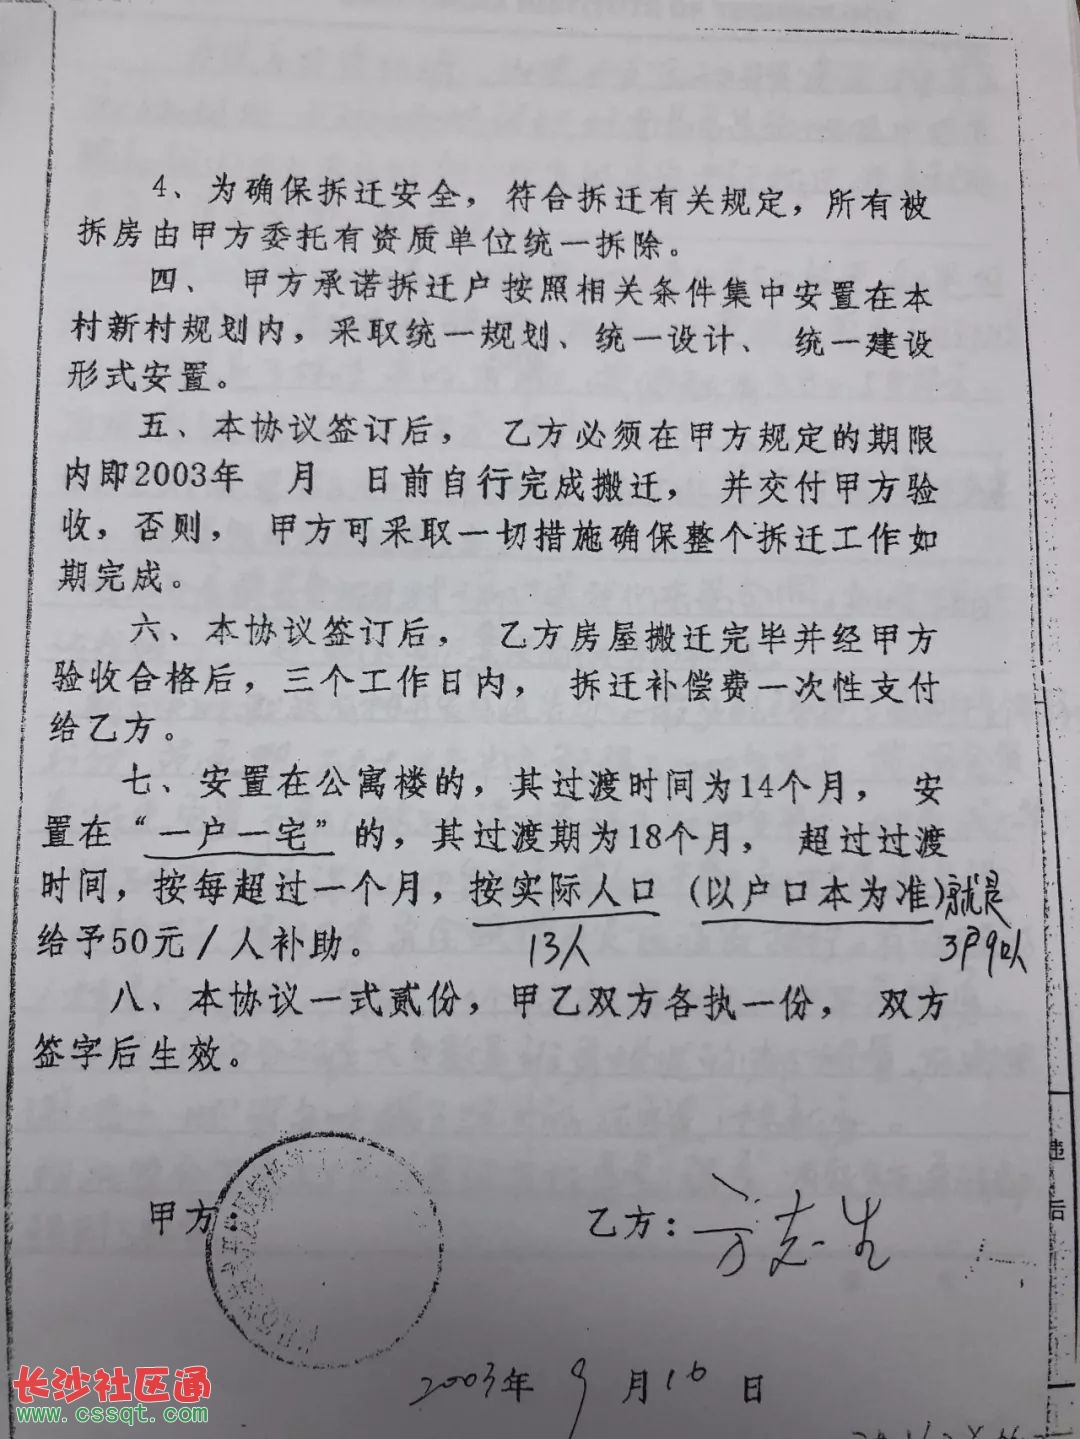 4、为确保拆迁安全，符合拆迁有关规定，所有被
拆房由甲方委托有资质单位统一拆除。
四、 甲方承诺拆迁户按照相关条件集中安置在本
村新村规划内，采取统一规划、统一设计、 统一建设
形式安置。
五、本协议签订后， 乙方必须在甲方规定的期限
内即2003年 月 日前自行完成搬迁， 并交付甲方验
收，否则， 甲方可采取一切措施确保整个拆迁工作如
期完成。
六、本协议签订后， 乙方房屋搬迁完毕并经甲方
验收合格后，三个工作日内， 拆迁补偿费一次性支付
给乙方。
七、安置在公寓楼的，其过渡时间为14个月， 安
置在“一户一宅”的，其过渡期为18个月， 超过过渡
时间，按每超过一个月，按实际人口（以户口本为准）就是
给予50元／人补助。 13人 3户9口人
八、本协议一式贰份，甲乙双方各执一份， 双方
签字后生效。
甲方： 乙方：方志生
2003年 9 月 16 日
违
后
长沙社区通
www.cssqt.com